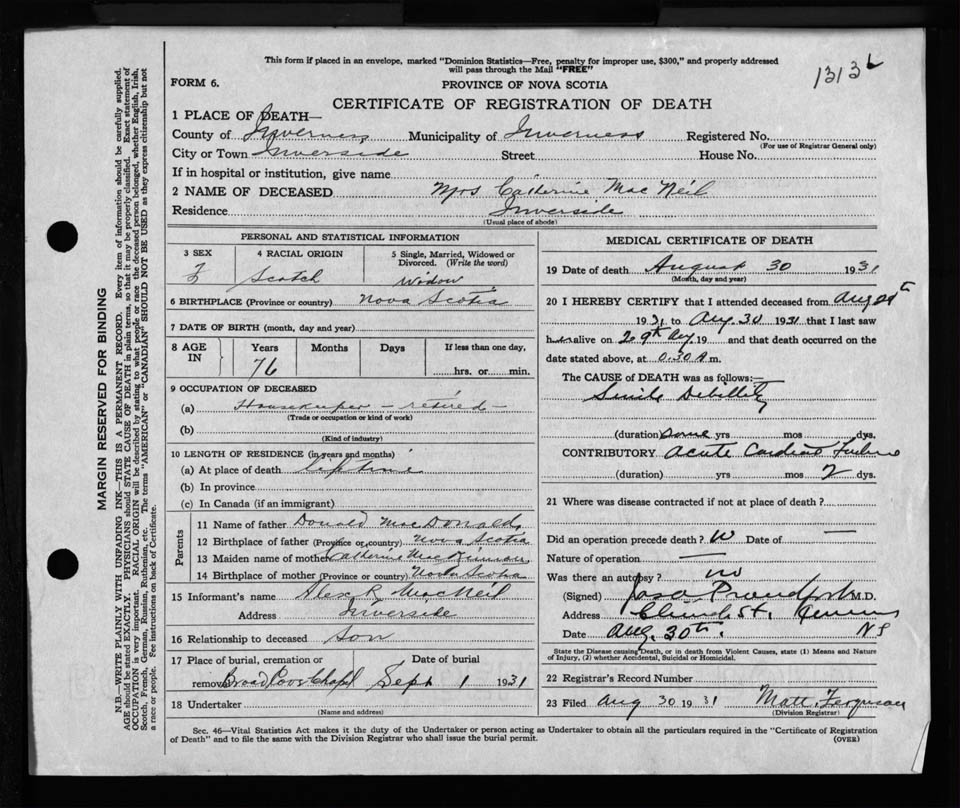 This form if placed in an envelope, marked "Dominion Statistics—Free, penalty for improper use, $300," and properly addressed
will pass through the Mail "FREE"
1313
FORM 6.
PROVINCE OF NOVA SCOTIA
CERTIFICATE OF REGISTRATION OF DEATH
1 PLACE OF DEATH—
County of Inverness Municipality of Inverness Registered No.
(For use of Registrar General only)
City or Town Inverside Street House No.
If in hospital or institution, give name
2 NAME OF DECEASED Mrs Catherine MacNeil
Residence Inverside
(Usual place of abode)
PERSONAL AND STATISTICAL INFORMATION
3 SEX 4 RACIAL ORIGIN 5 Single, Married, Widowed or
Divorced. (Write the word)
F Scotch Widow
6 BIRTHPLACE (Province or country) Nova Scotia
7 DATE OF BIRTH (month, day and year)
8 AGE IN Years Months Days If less than one day,
76 hrs. or min.
9 OCCUPATION OF DECEASED
(a) Housekeeper – retired –
(Trade or occupation or kind of work)
(b)
(Kind of industry)
10 LENGTH OF RESIDENCE (in years and months)
(a) At place of death
(b) In province
(c) In Canada (if an immigrant)
Parents
11 Name of father Donald MacDonald
12 Birthplace of father (Province or country) Nova Scotia
13 Maiden name of mother Catherine MacKinnon
14 Birthplace of mother (Province or country) Nova Scotia
15 Informant's name Alex R MacNeil
Address Inverside
16 Relationship to deceased Son
17 Place of burial, cremation or Date of burial
removal Broad Cove Chapel Sept 1 1931
18 Undertaker
(Name and address)
MEDICAL CERTIFICATE OF DEATH
19 Date of death August 30 1931
(Month, day and year)
20 I HEREBY CERTIFY that I attended deceased from Aug
1931 to Aug. 30 1931 that I last saw
her alive on 29th Aug 19 and that death occurred on the
date stated above, at 0.30 A.m.
The CAUSE of DEATH was as follows:—
Senile Debility
(duration) some yrs mos dys.
CONTRIBUTORY Acute Cardiac Failure
(duration) yrs mos 2 dys.
21 Where was disease contracted if not at place of death?
Did an operation precede death? Date of —
Nature of operation —
Was there an autopsy? no
(Signed) Proudfoot M.D.
Address
Date Aug. 30th. NS
State the Disease causing Death, or in death from Violent Causes, state (1) Means and Nature
of Injury, (2) whether Accidental, Suicidal or Homicidal.
22 Registrar's Record Number
23 Filed Aug 30 1931 Matt. Ferguson
(Division Registrar)
Sec. 46—Vital Statistics Act makes it the duty of the Undertaker or person acting as Undertaker to obtain all the particulars required in the "Certificate of Registration
of Death" and to file the same with the Division Registrar who shall issue the burial permit.
(OVER)
MARGIN RESERVED FOR BINDING
N.B.—WRITE PLAINLY WITH UNFADING INK—THIS IS A PERMANENT RECORD. Every item of information should be carefully supplied.
AGE should be stated EXACTLY. PHYSICIANS should STATE CAUSE OF DEATH in plain terms, so that it may be properly classified. Exact statement of
OCCUPATION is very important. RACIAL ORIGIN will be described by stating to what people or race the deceased person belonged, whether English, Irish,
Scotch, French, German, Russian, Ruthenian, etc. The terms "AMERICAN" or "CANADIAN" SHOULD NOT BE USED as they express citizenship but not
a race or people. See instructions on back of Certificate.